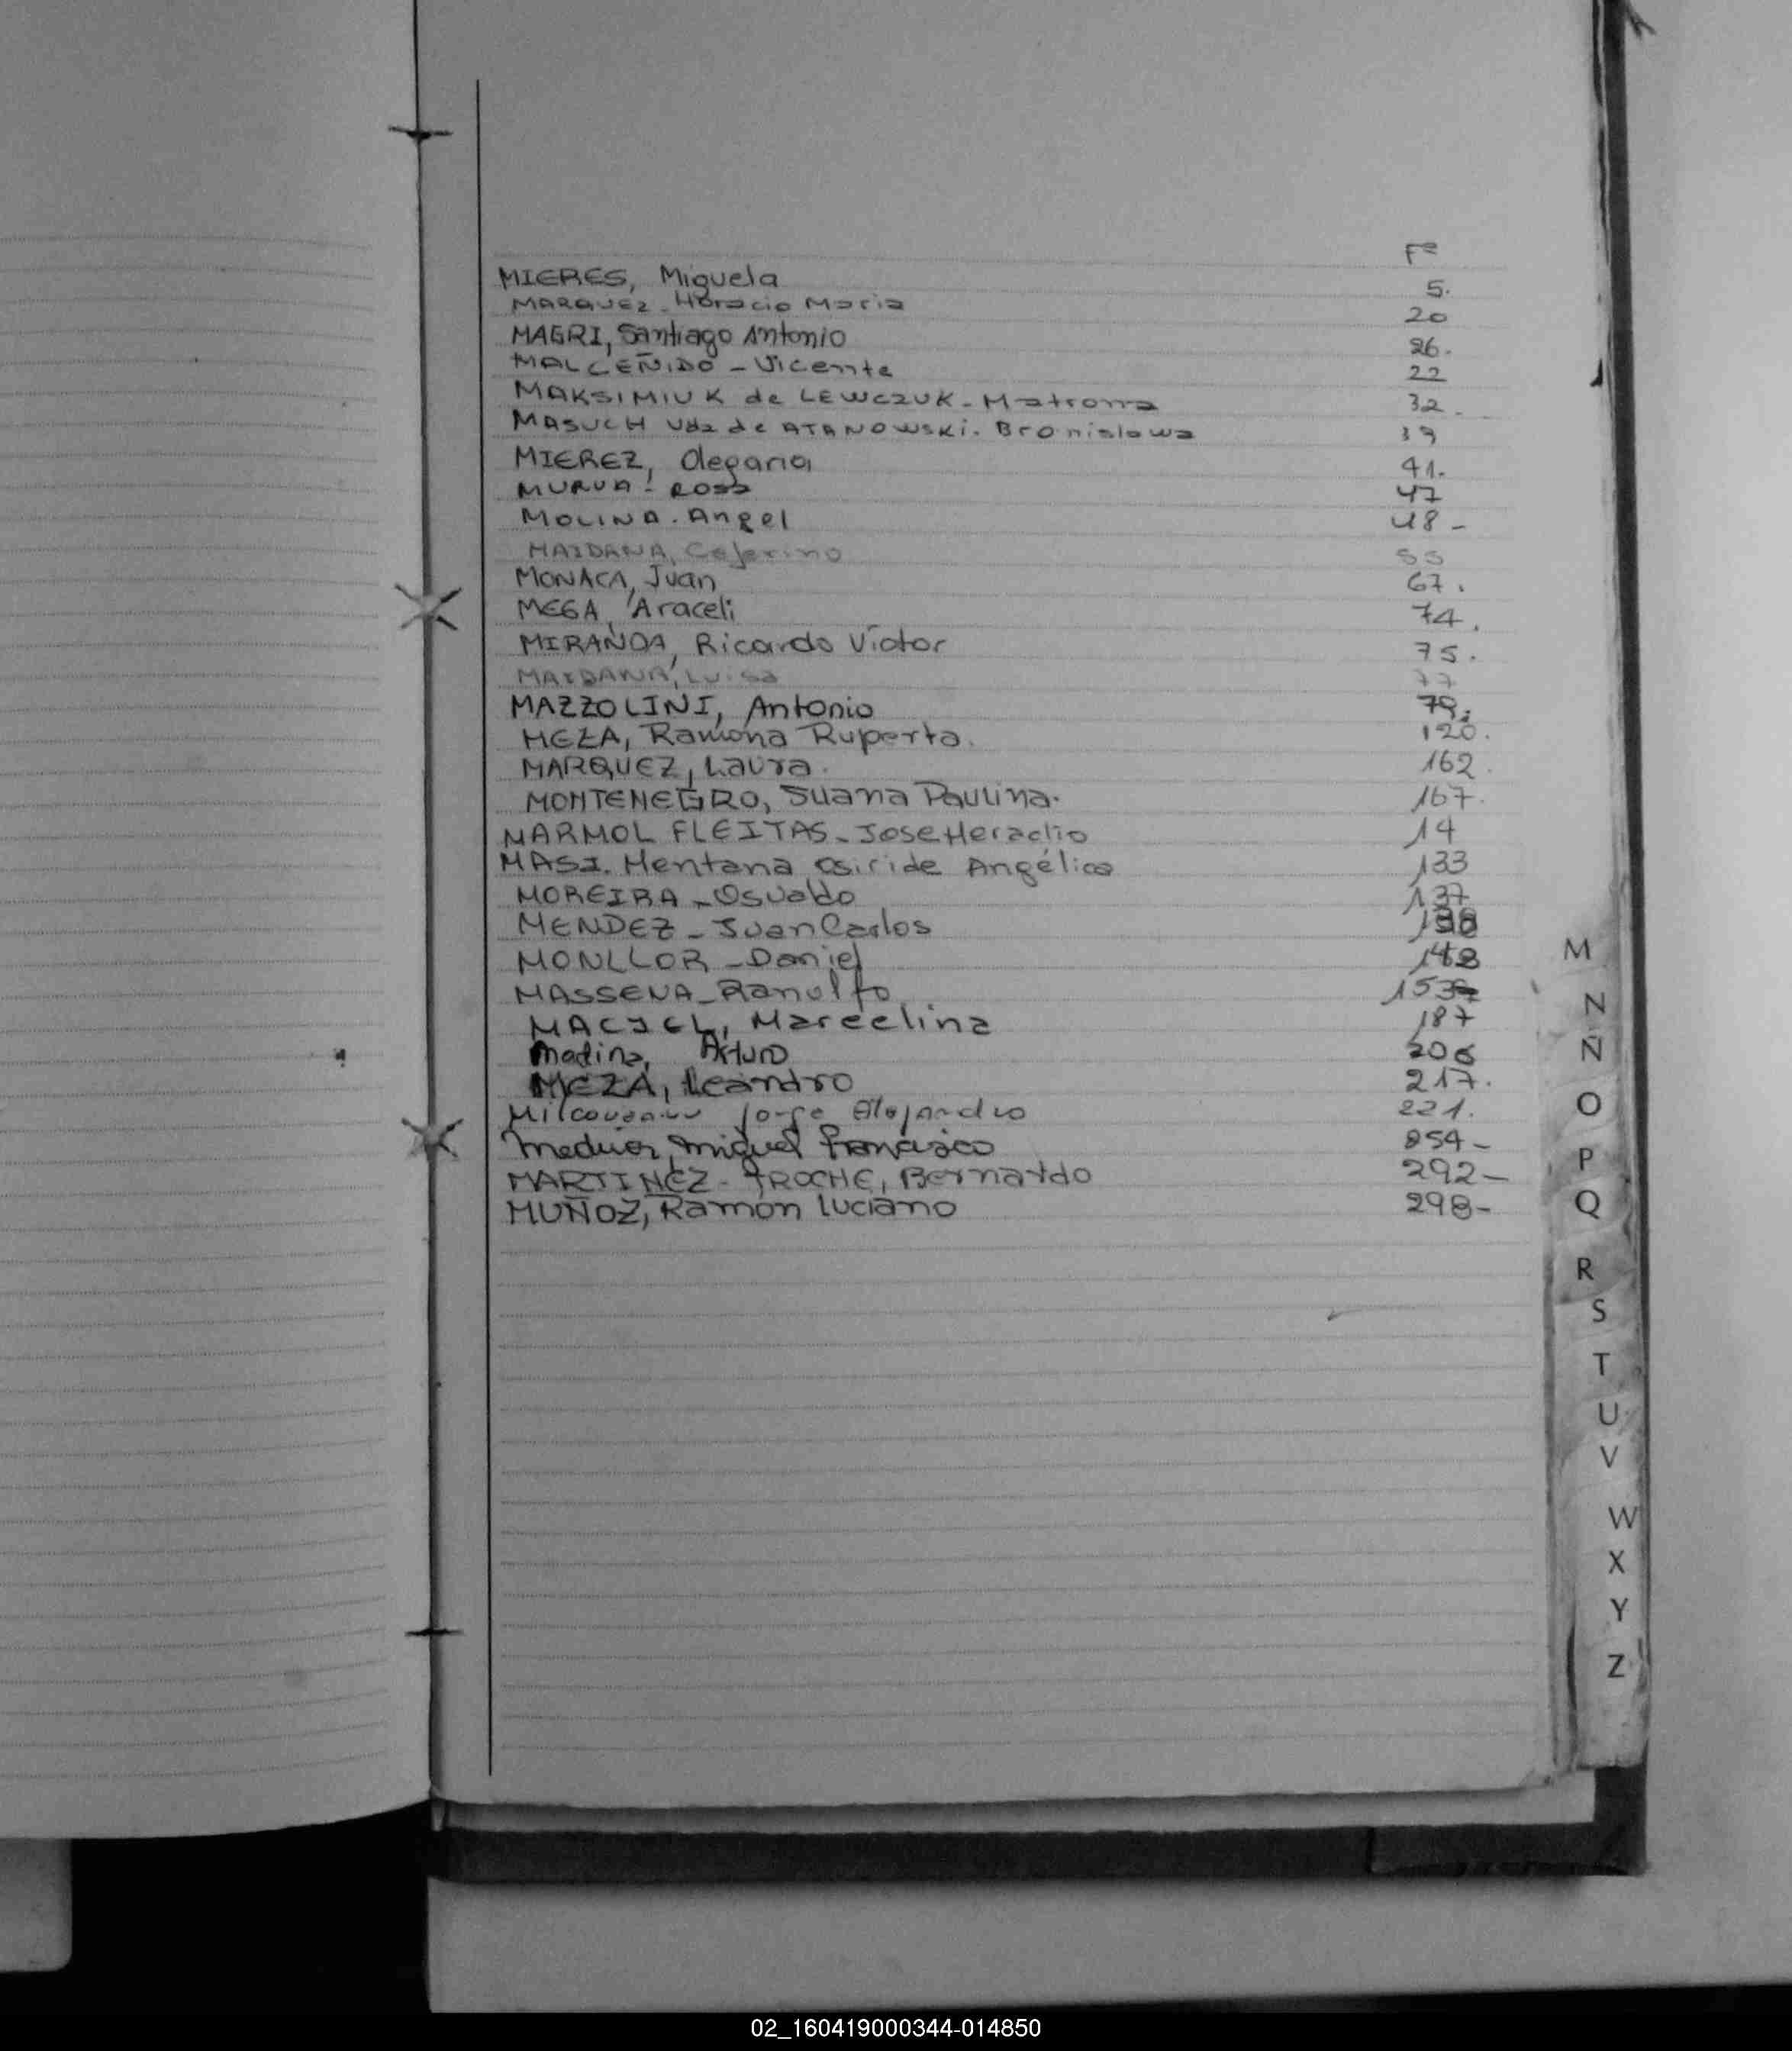 Fº
MIERES, Miguela 5.
MARQUEZ - Horacio Maria 20
MAGRI, Santiago Antonio 26.
MALCEÑIDO - Vicente 22
MAKSIMIUK de LEWCZUK - Matrona 32.
MASUCH Vda de ATANOWSKI. Bronislawa 39
MIEREZ, Olegaria 41.
MURUA - ROSA 47
MOLINA. Angel 48 -
MAIDANA, Ceferino 55
MONACA, Juan 67.
MEGA, Araceli 74.
MIRANDA, Ricardo Víctor 75.
MAIDANA, Luisa 77
MAZZOLINI, Antonio 79.
MEZA, Ramona Ruperta. 120.
MARQUEZ, Laura. 162.
MONTENEGRO, Juana Paulina. 167.
MARMOL FLEITAS - Jose Heraclio 14
MASI. Mentana Osiride Angélica 133
MOREIRA - Osvaldo 137
MENDEZ - Juan Carlos
MONLLOR - Daniel 148
MASSENA - Ranulfo 153
MACIEL, Marcelina 187
Medina, Arturo 206
MEZA, Leandro 217.
Jorge Alejandro 221.
Miguel Francisco 254 -
MARTINEZ - TROCHE, Bernardo 292 -
MUÑOZ, Ramon Luciano 298 -
M
N
Ñ
O
P
Q
R
S
T
U
V
W
X
Y
Z
02_160419000344-014850